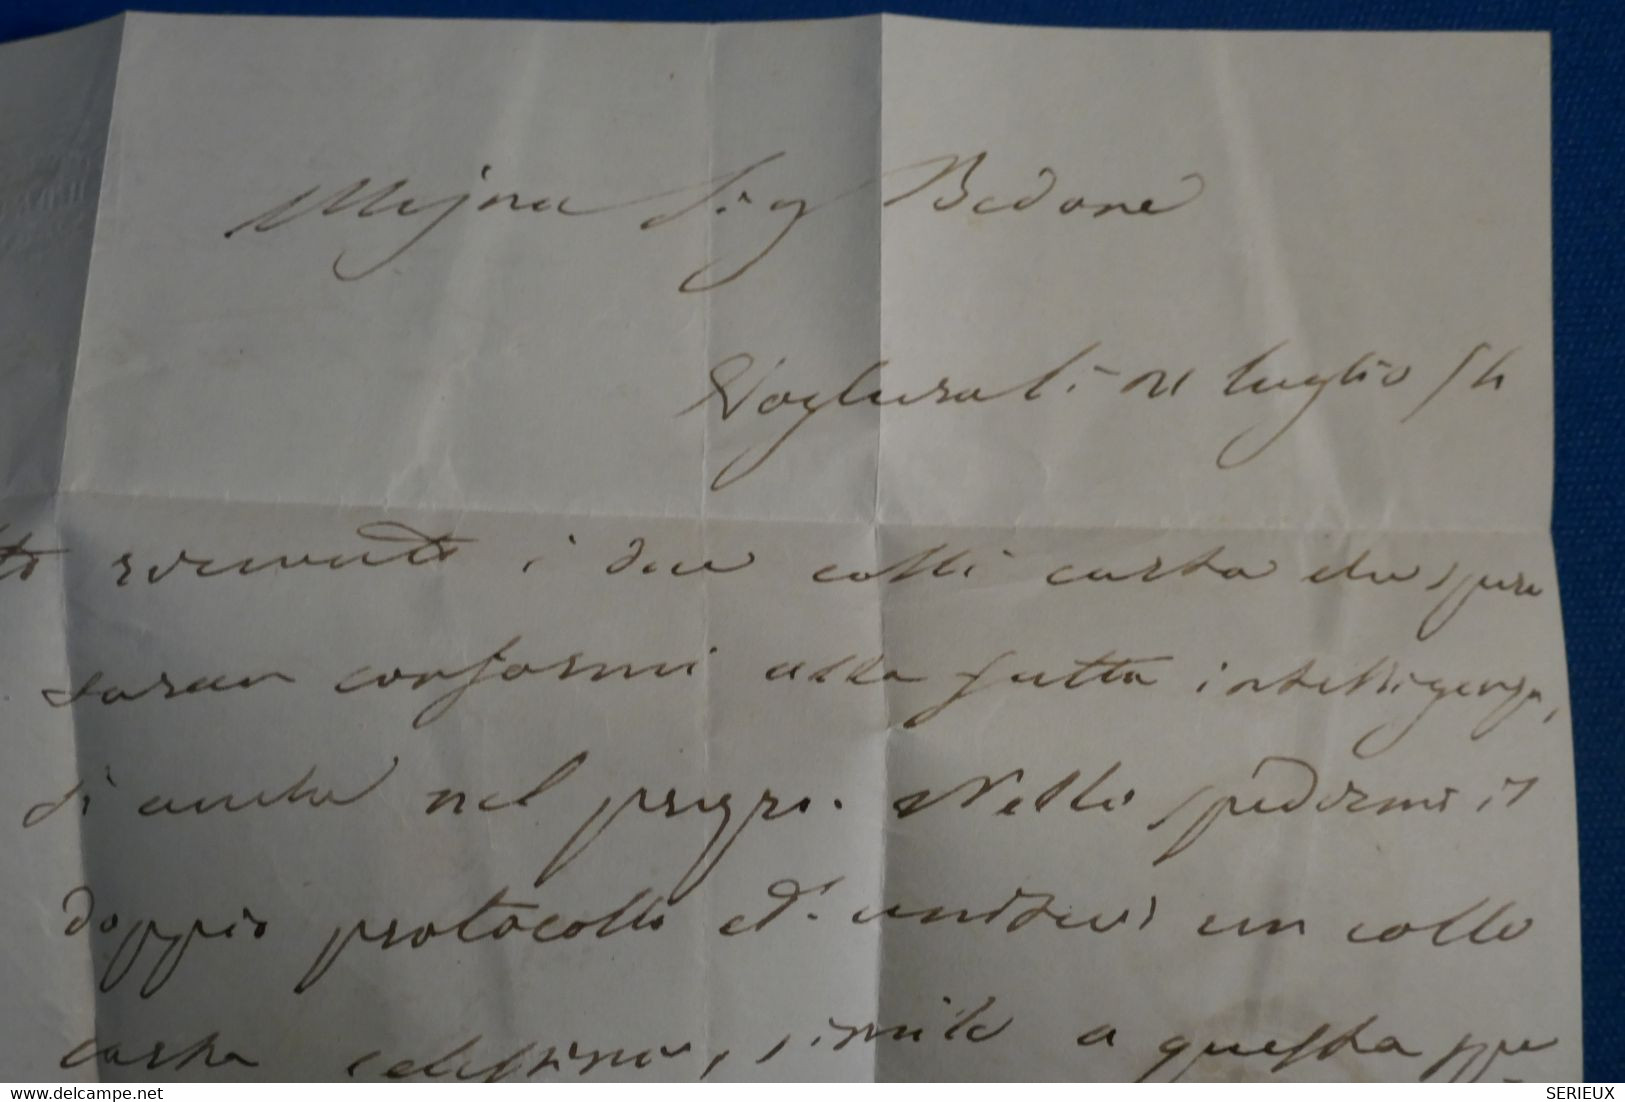 Mejna Sig Bedone
Voghera li 21 luglio 54
ricevuto i due colli carta che spero
saran conformi alla fatta intelligenza,
sì anche nel prezzo. Nello spedirmi il
doppio protocollo ed unitevi un collo
carta celestina, simile a questa
delcampe.net
SERIEUX